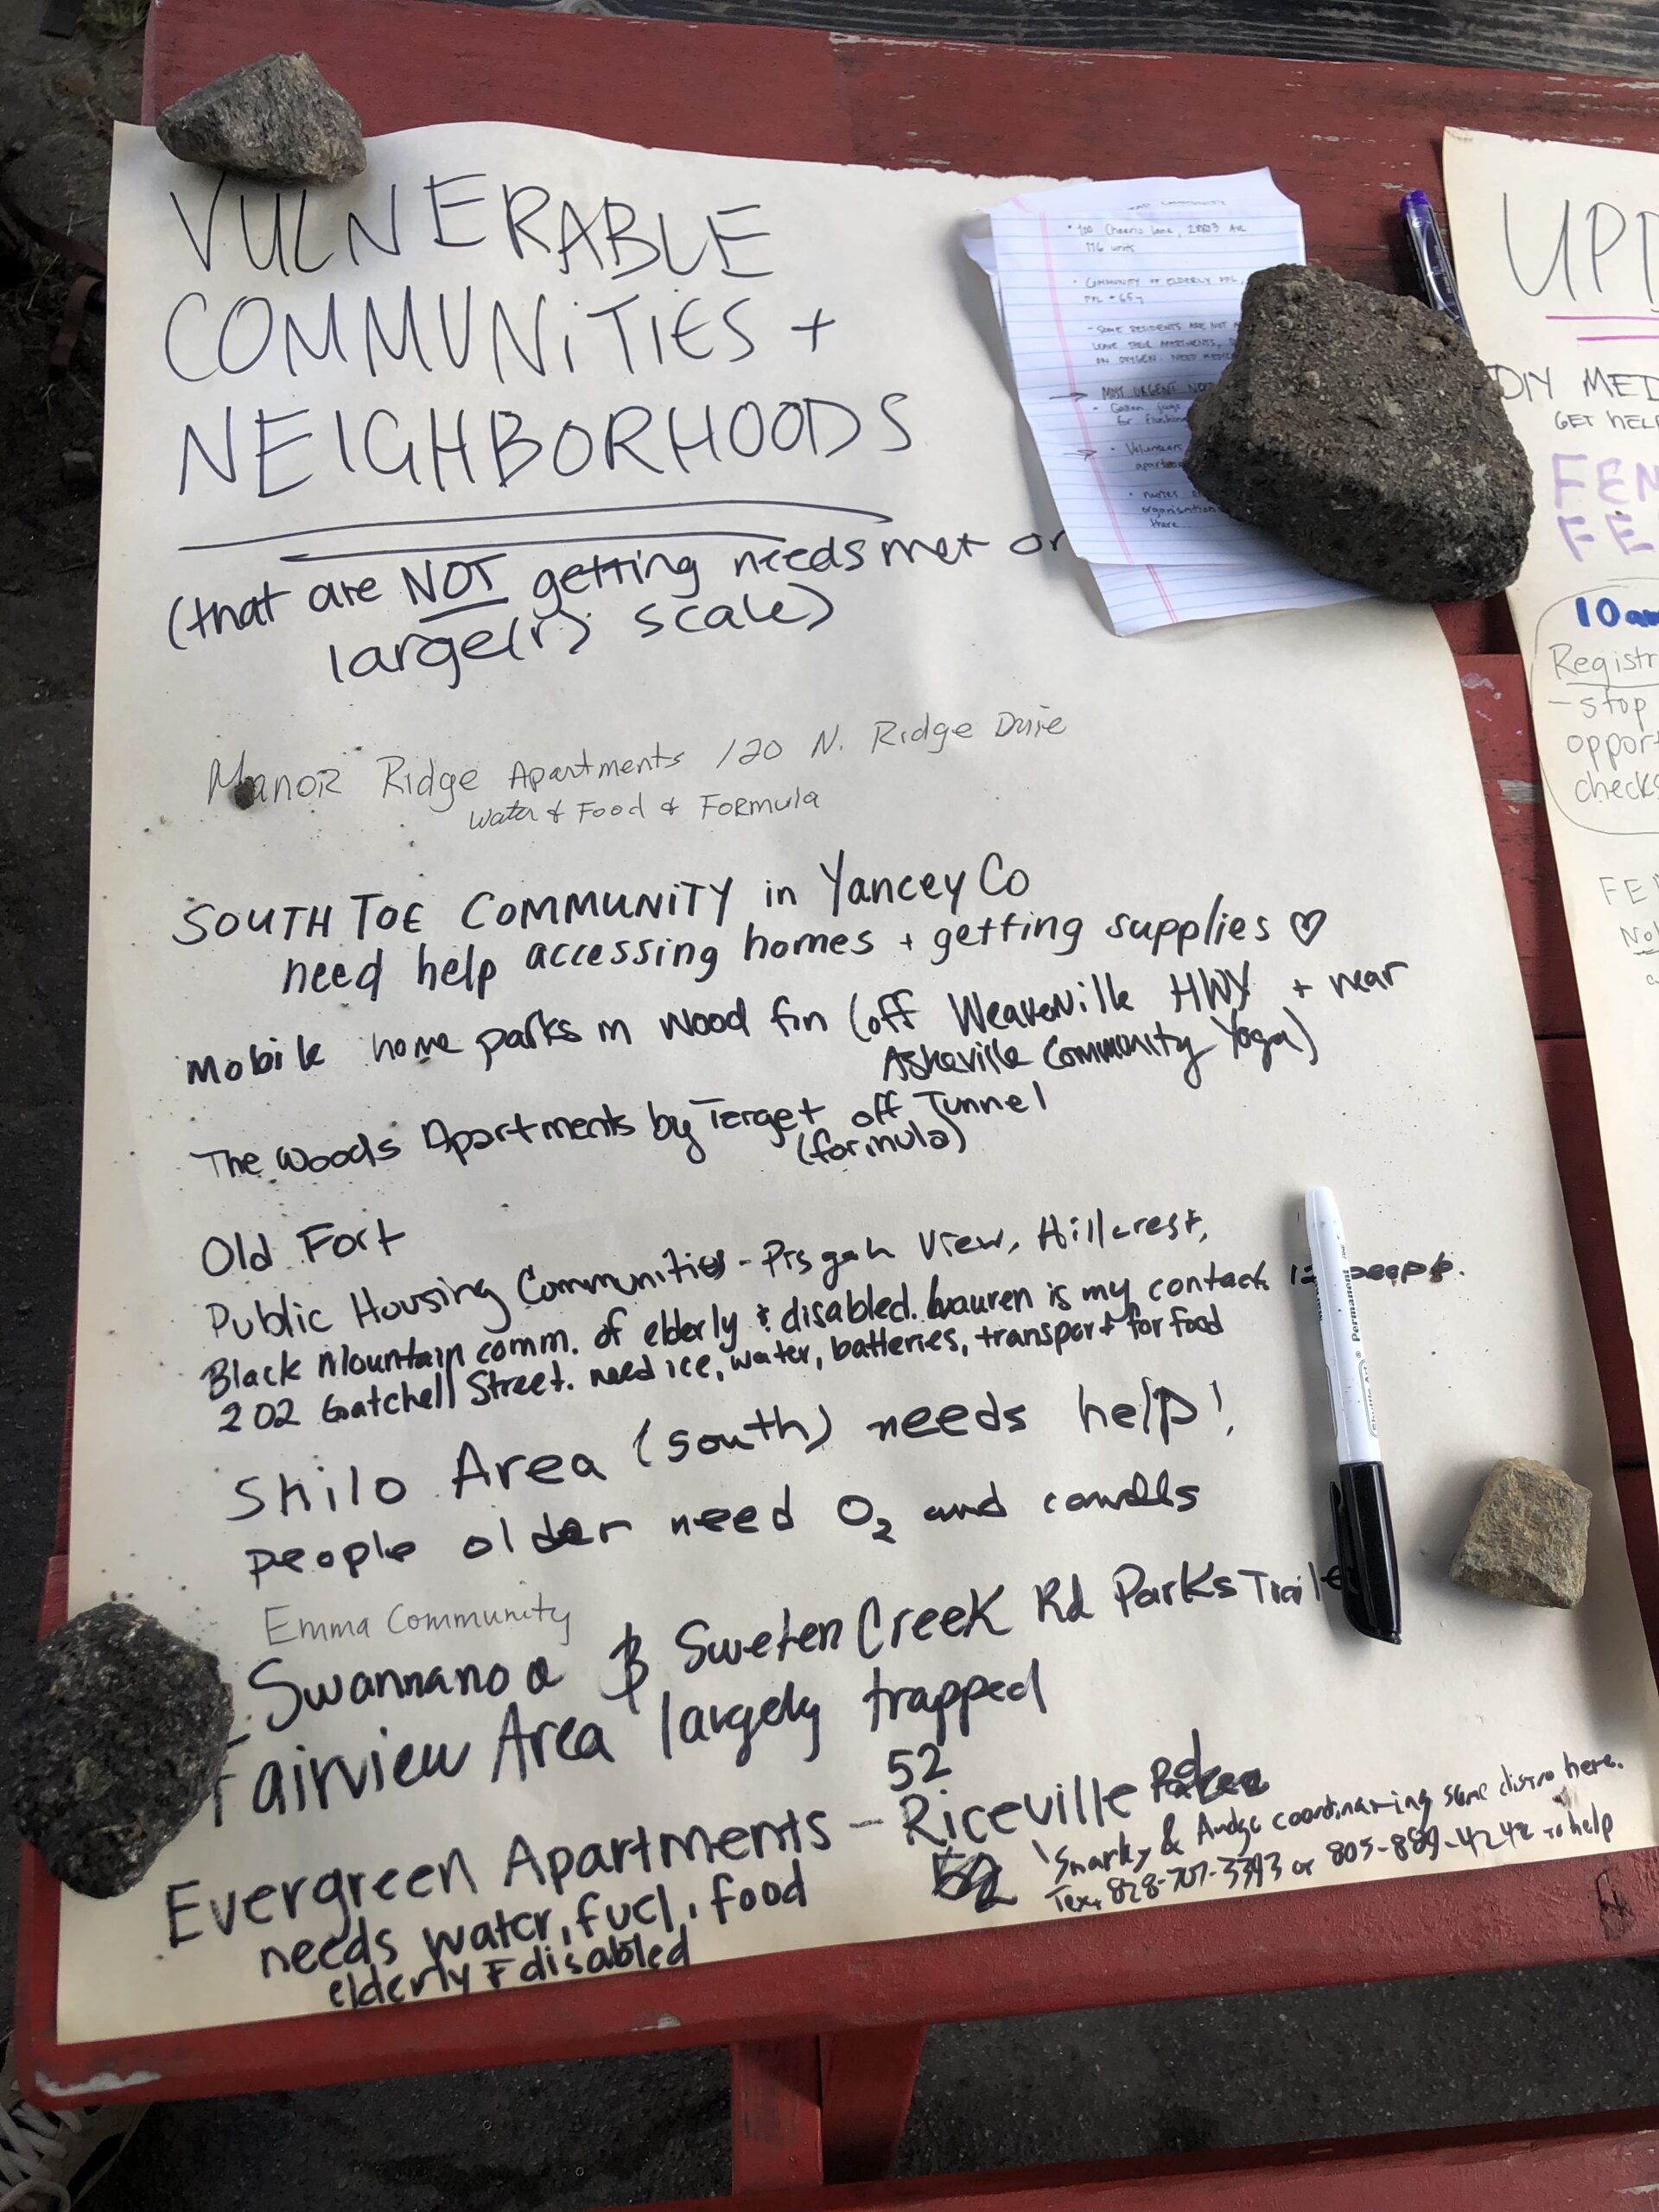 VULNERABLE
COMMUNITIES +
NEIGHBORHOODS
(that are NOT getting needs met on
large(r) scale)
Manor Ridge Apartments 120 N. Ridge Drive
Water & Food & Formula
SOUTH TOE COMMUNITY in Yancey Co
need help accessing homes + getting supplies ♡
Mobile home parks in Wood fin (off Weaverville HWY + near
Asheville Community Yoga)
The Woods Apartments by Target off Tunnel
(formula)
Old Fort
Public Housing Communities - Pisgah View, Hillcrest,
Black Mountain comm. of elderly & disabled. Lauren is my contact. people.
202 Gatchell Street. need ice, water, batteries, transport for food
Shilo Area (south) needs help!
people older need O₂ and
Emma Community
Swannanoa & Sweten Creek Rd Parks
Fairview Area largely trapped
52
Evergreen Apartments - Riceville
needs water, fuel, food
elderly & disabled
52
Snarky & Audge coordinating some distro here.
Text 828-707-3393 or to help
COMMUNITY
• 100 Lane,
116 units
• COMMUNITY OF ELDERLY PPL,
- SOME RESIDENTS ARE NOT
LEAVE THEIR APARTMENTS,
ON OXYGEN. NEED
→ MOST URGENT
- Gallon jugs
for flushing
→ • Volunteers
• nurses
organisation
there
Permanent
DIY MED
GET HELP
10am
Registr
- stop
opport
checks